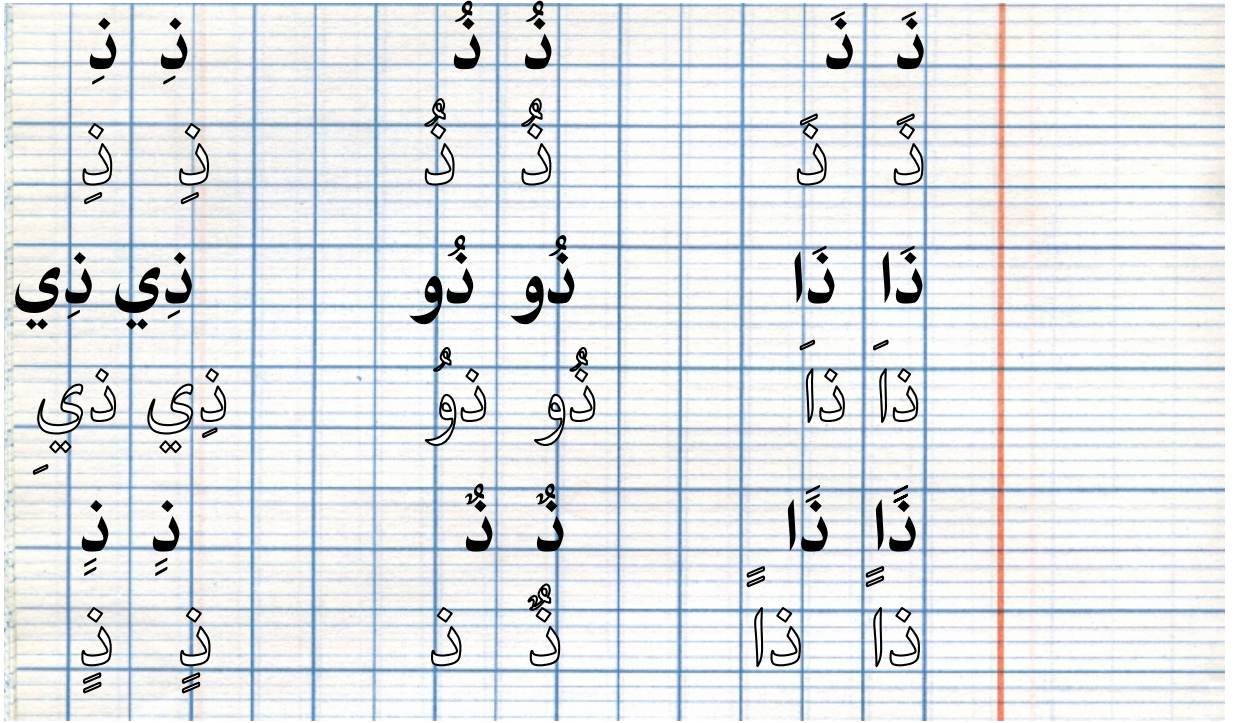 ذَ ذَ ذُ ذُ ذِ ذِ
ذَ ذَ ذُ ذُ ذِ ذِ
ذَا ذَا ذُو ذُو ذِي ذِي
ذاَ ذاَ ذُو ذوُ ذِي ذيِ
ذًا ذًا ذٌ ذٌ ذٍ ذٍ
ذاً ذاً ذٌ ذ ذٍ ذٍ